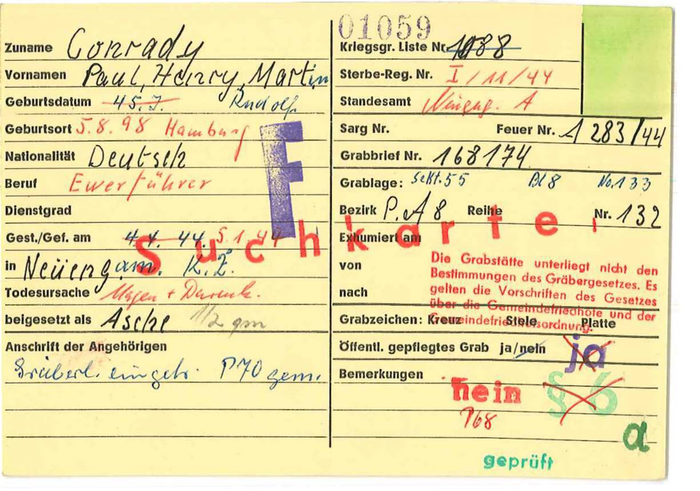 01059
Zuname Conrady
Vornamen Paul, Henry, Martin
Geburtsdatum 45 J. Rudolf
Geburtsort 5.8.98 Hamburg
Nationalität Deutsch
Beruf Ewerführer
Dienstgrad
Gest./Gef. am 4.1. 44. 5.1.44
in Neüengam. K.Z.
Todesursache Magen + Darmk.
beigesetzt als Asche 1/2 qm
Anschrift der Angehörigen
P70 gem.
F
Suchkartei
Kriegsgr. Liste Nr. 1088
Sterbe-Reg. Nr. I/11/44
Standesamt A
Sarg Nr. Feuer Nr. A 283/44
Grabbrief Nr. 168174
Grablage: Sekt. 55 Bl 8 No. 133
Bezirk P.A8 Reihe Nr. 132
Exhumiert am
von
nach
Die Grabstätte unterliegt nicht den
Bestimmungen des Gräbergesetzes. Es
gelten die Vorschriften des Gesetzes
über die Gemeindefriedhöfe und der
Gemeindefriedhofsordnung.
Grabzeichen: Kreuz Stele Platte
Öffentl. gepflegtes Grab ja/nein ja
Bemerkungen
nein § 6
168
a
geprüft